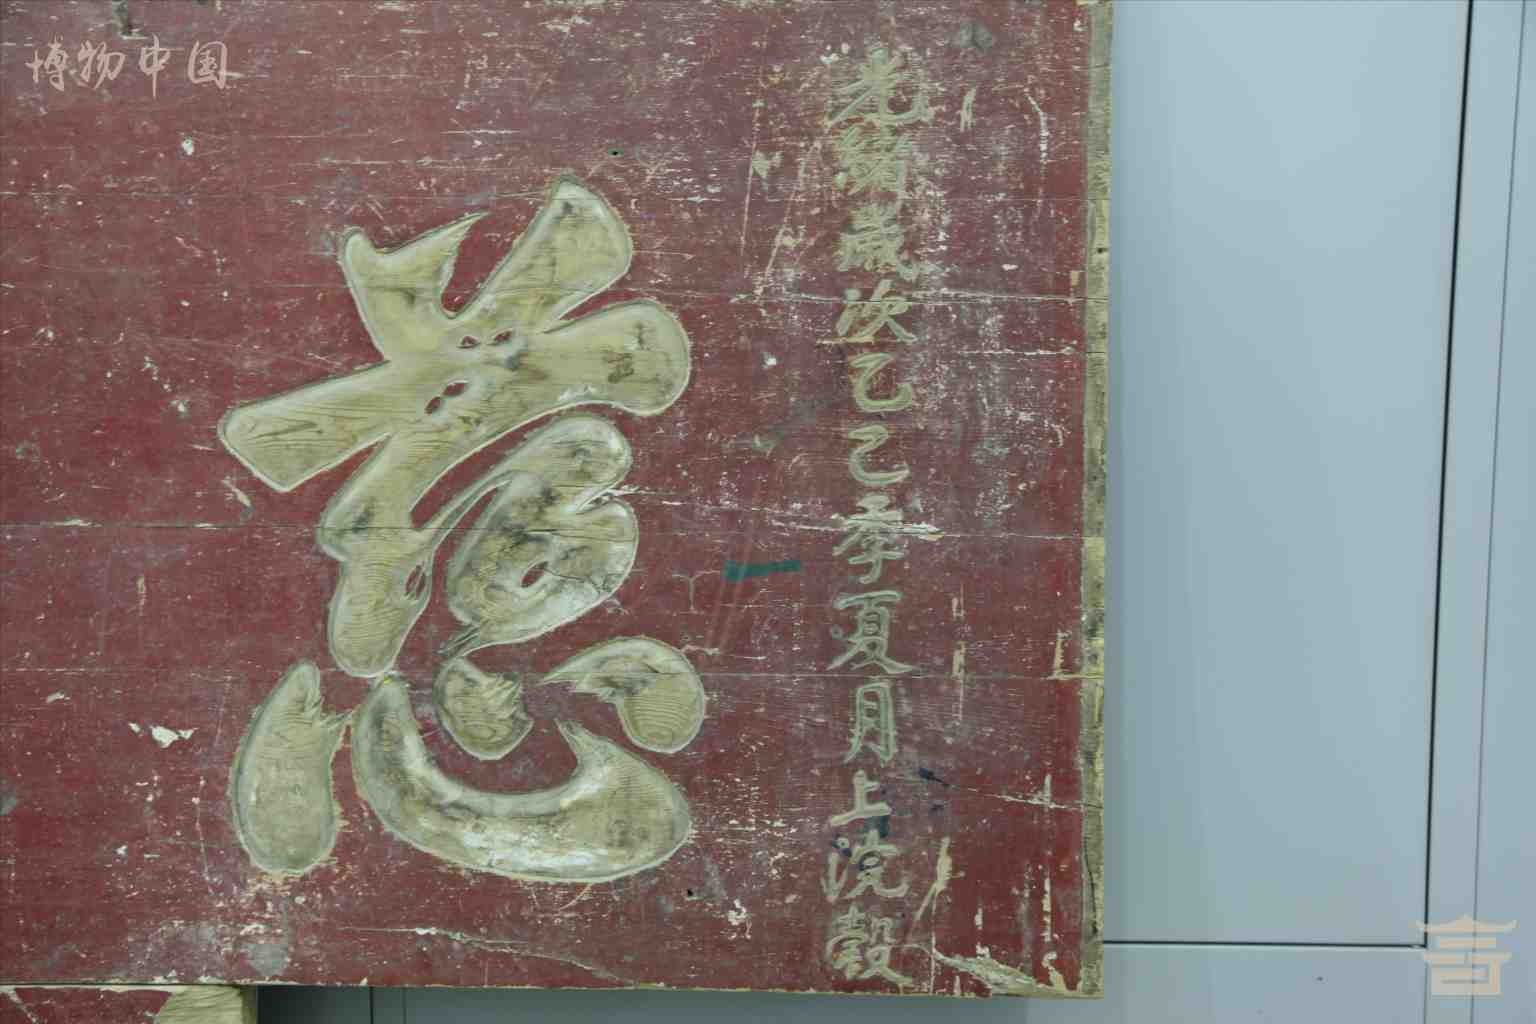 博物中国
光緒歲次乙巳季夏月上浣穀
慈